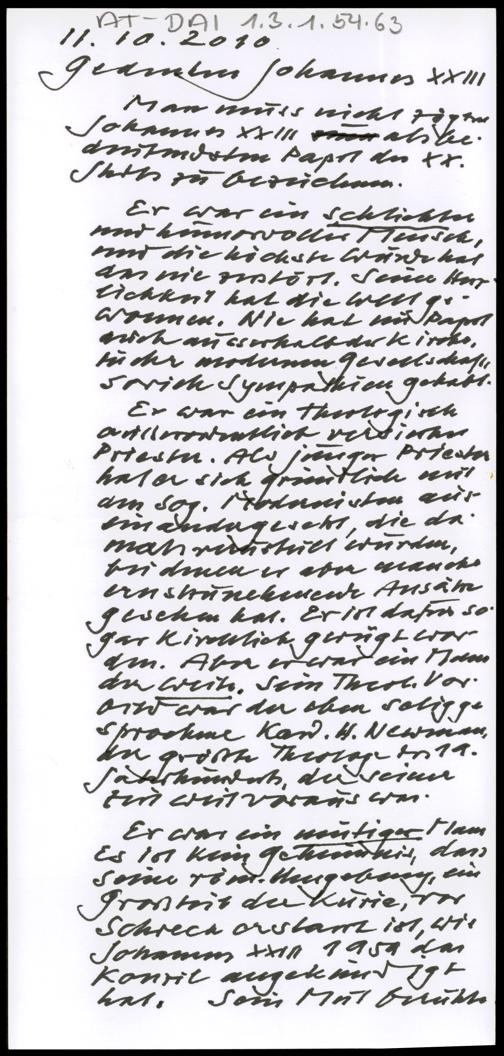 AT-DAI 1.3.1.54.63
11.10.2010
Gedenken Johannes XXIII
Man muss nicht zögern
Johannes XXIII als be-
deutendsten Papst des XX.
Jhdts zu bezeichnen.
Er war ein schlichter
und humorvoller Mensch,
und die höchste Würde hat
das nie zerstört. Seine Herz-
lichkeit hat die Welt ge-
wonnen. Nie hat ein Papst
auch ausserhalb der Kirche,
in der modernen Gesellschaft
soviel Sympathien gehabt.
Er war ein theologisch
ausserordentlich versierter
Priester. Als junger Priester
hat er sich gründlich mit
den sog. Modernisten aus-
einandergesetzt, die da-
mals verurteilt wurden,
bei denen er aber manche
ernstzunehmende Ansätze
gesehen hat. Er ist dafür so-
gar kirchlich gerügt wor-
den. Aber er war ein Mann
der Weite. Sein theol. Vor-
bild war der eben seligge-
sprochene Kard. H. Newman,
der grösste Theologe des 19.
Jahrhunderts, der seiner
Zeit weit voraus war.
Er war ein mutiger Mann
Es ist kein Geheimnis, dass
seine röm. Umgebung, ein
Grossteil der Kurie, vor
Schreck erstarrt ist, wie
Johannes XXIII 1959 das
Konzil angekündigt
hat. Sein Mut beruhte